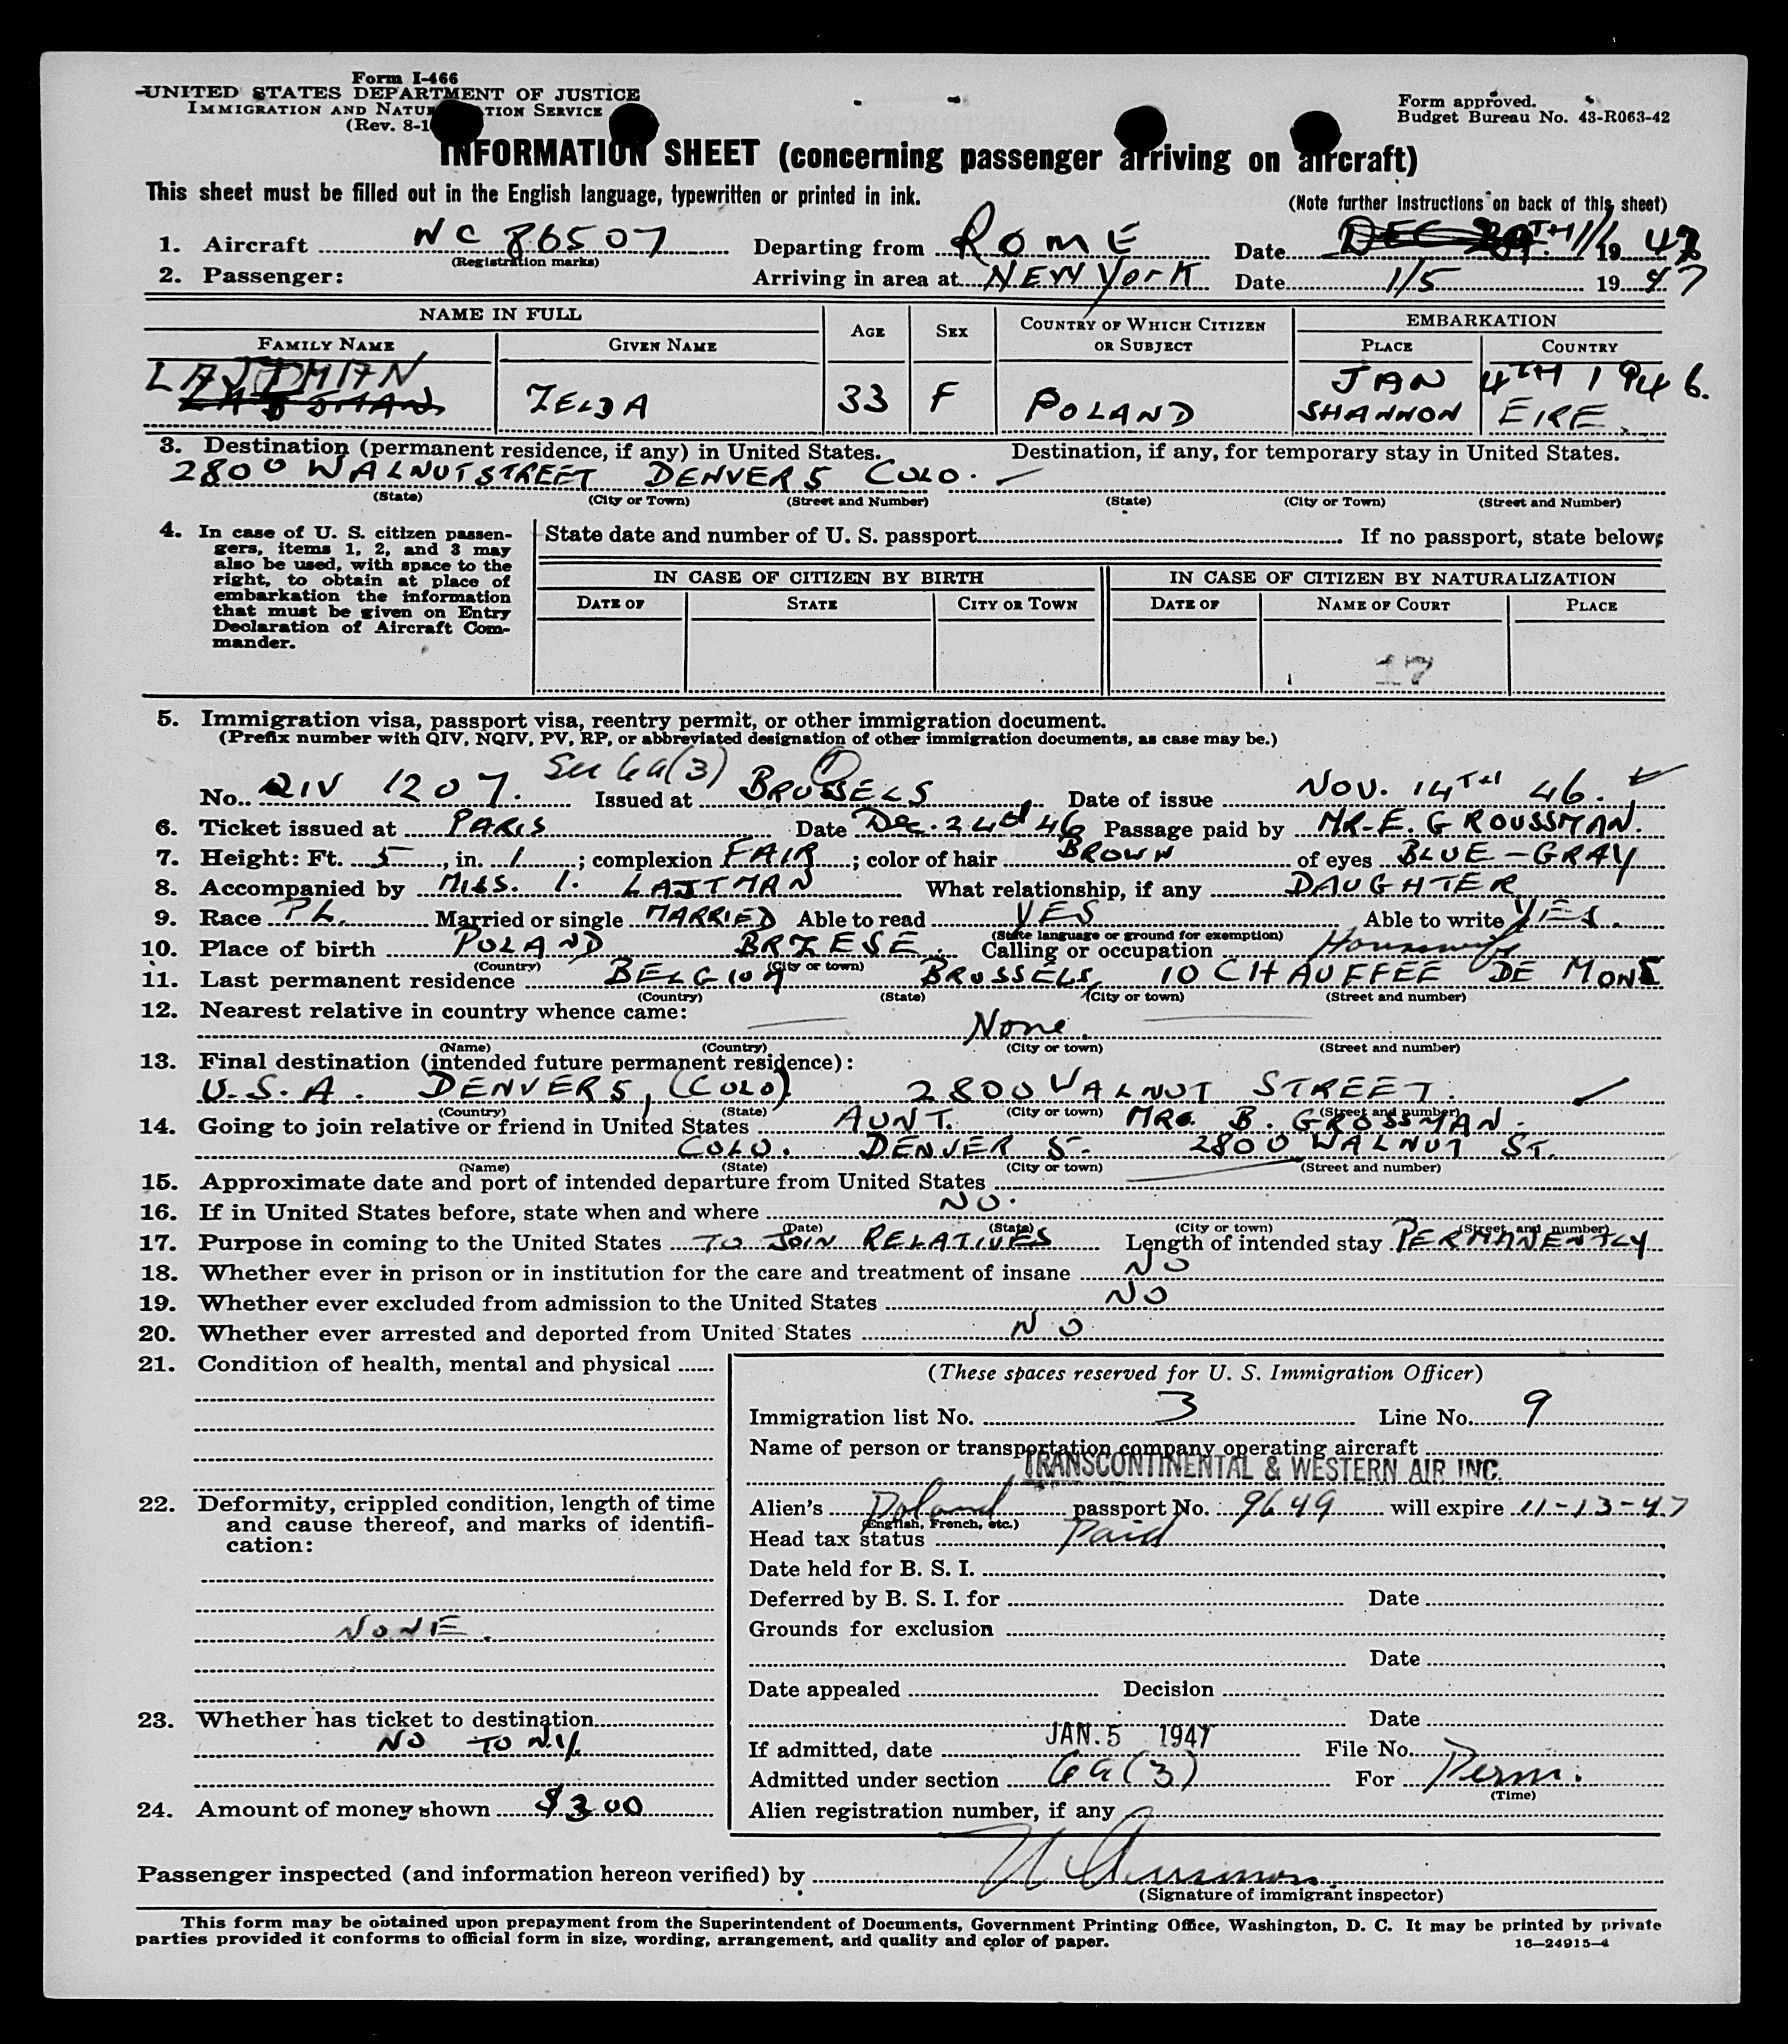 Form I-466
UNITED STATES DEPARTMENT OF JUSTICE
IMMIGRATION AND NATU TION SERVICE
(Rev. 8-1
Form approved.
Budget Bureau No. 43-R063-42
INFORMATION SHEET (concerning passenger arriving on aircraft)
This sheet must be filled out in the English language, typewritten or printed in ink.
(Note further instructions on back of this sheet)
1. Aircraft NC 86507 Departing from ROME Date 1/1 1947
(Registration marks)
2. Passenger: Arriving in area at NEW YORK Date 1/5 1947
NAME IN FULL AGE SEX COUNTRY OF WHICH CITIZEN OR SUBJECT EMBARKATION
FAMILY NAME GIVEN NAME PLACE COUNTRY
JAN 4TH 1946.
LAJTMAN ZELDA 33 F POLAND SHANNON EIRE
3. Destination (permanent residence, if any) in United States. Destination, if any, for temporary stay in United States.
2800 WALNUT STREET DENVER 5 COLO. —
(State) (City or Town) (Street and Number) (State) (City or Town) (Street and Number)
4. In case of U. S. citizen passengers, items 1, 2, and 3 may also be used, with space to the right, to obtain at place of embarkation the information that must be given on Entry Declaration of Aircraft Commander.
State date and number of U. S. passport If no passport, state below:
IN CASE OF CITIZEN BY BIRTH IN CASE OF CITIZEN BY NATURALIZATION
DATE OF STATE CITY OR TOWN DATE OF NAME OF COURT PLACE
17
5. Immigration visa, passport visa, reentry permit, or other immigration document.
(Prefix number with QIV, NQIV, PV, RP, or abbreviated designation of other immigration documents, as case may be.)
See 6a(3)
No. QIV 1207. Issued at BRUSSELS Date of issue NOV. 14TH 46.
6. Ticket issued at PARIS Date Dec. 24d 46 Passage paid by MR-E. GROUSSMAN.
7. Height: Ft. 5, in. 1; complexion FAIR; color of hair BROWN of eyes BLUE-GRAY
8. Accompanied by MISS. I. LAJTMAN What relationship, if any DAUGHTER
9. Race PL. Married or single MARRIED Able to read YES Able to write YES.
(State language or ground for exemption)
10. Place of birth POLAND BRZESE. Calling or occupation Housewife
(Country) (City or town)
11. Last permanent residence BELGIUM BRUSSELS, 10 CHAUFFEE DE MONS
(Country) (State) (City or town) (Street and number)
12. Nearest relative in country whence came:
None.
(Name) (Country) (City or town) (Street and number)
13. Final destination (intended future permanent residence):
U.S.A. DENVER 5, (COLO) 2800 WALNUT STREET.
(Country) (State) (City or town) (Street and number)
14. Going to join relative or friend in United States AUNT. MRS. B. GROSSMAN.
COLO. DENVER 5- 2800 WALNUT ST.
(Name) (State) (City or town) (Street and number)
15. Approximate date and port of intended departure from United States —
16. If in United States before, state when and where NO.
(Date) (State) (City or town) (Street and number)
17. Purpose in coming to the United States TO JOIN RELATIVES Length of intended stay PERMANENTLY
18. Whether ever in prison or in institution for the care and treatment of insane NO
19. Whether ever excluded from admission to the United States NO
20. Whether ever arrested and deported from United States NO
21. Condition of health, mental and physical
22. Deformity, crippled condition, length of time and cause thereof, and marks of identification:
NONE.
23. Whether has ticket to destination
NO TO N.Y.
24. Amount of money shown $3.00
(These spaces reserved for U. S. Immigration Officer)
Immigration list No. 3 Line No. 9
Name of person or transportation company operating aircraft
TRANSCONTINENTAL & WESTERN AIR INC.
Alien's Poland passport No. 9649 will expire 11-13-47
(English, French, etc.)
Head tax status Paid
Date held for B. S. I.
Deferred by B. S. I. for Date
Grounds for exclusion
Date
Date appealed Decision
Date
If admitted, date JAN. 5 1947 File No.
Admitted under section 6a(3) For Perm.
(Time)
Alien registration number, if any
Passenger inspected (and information hereon verified) by
(Signature of immigrant inspector)
This form may be obtained upon prepayment from the Superintendent of Documents, Government Printing Office, Washington, D. C. It may be printed by private
parties provided it conforms to official form in size, wording, arrangement, and quality and color of paper.
16—24915-4